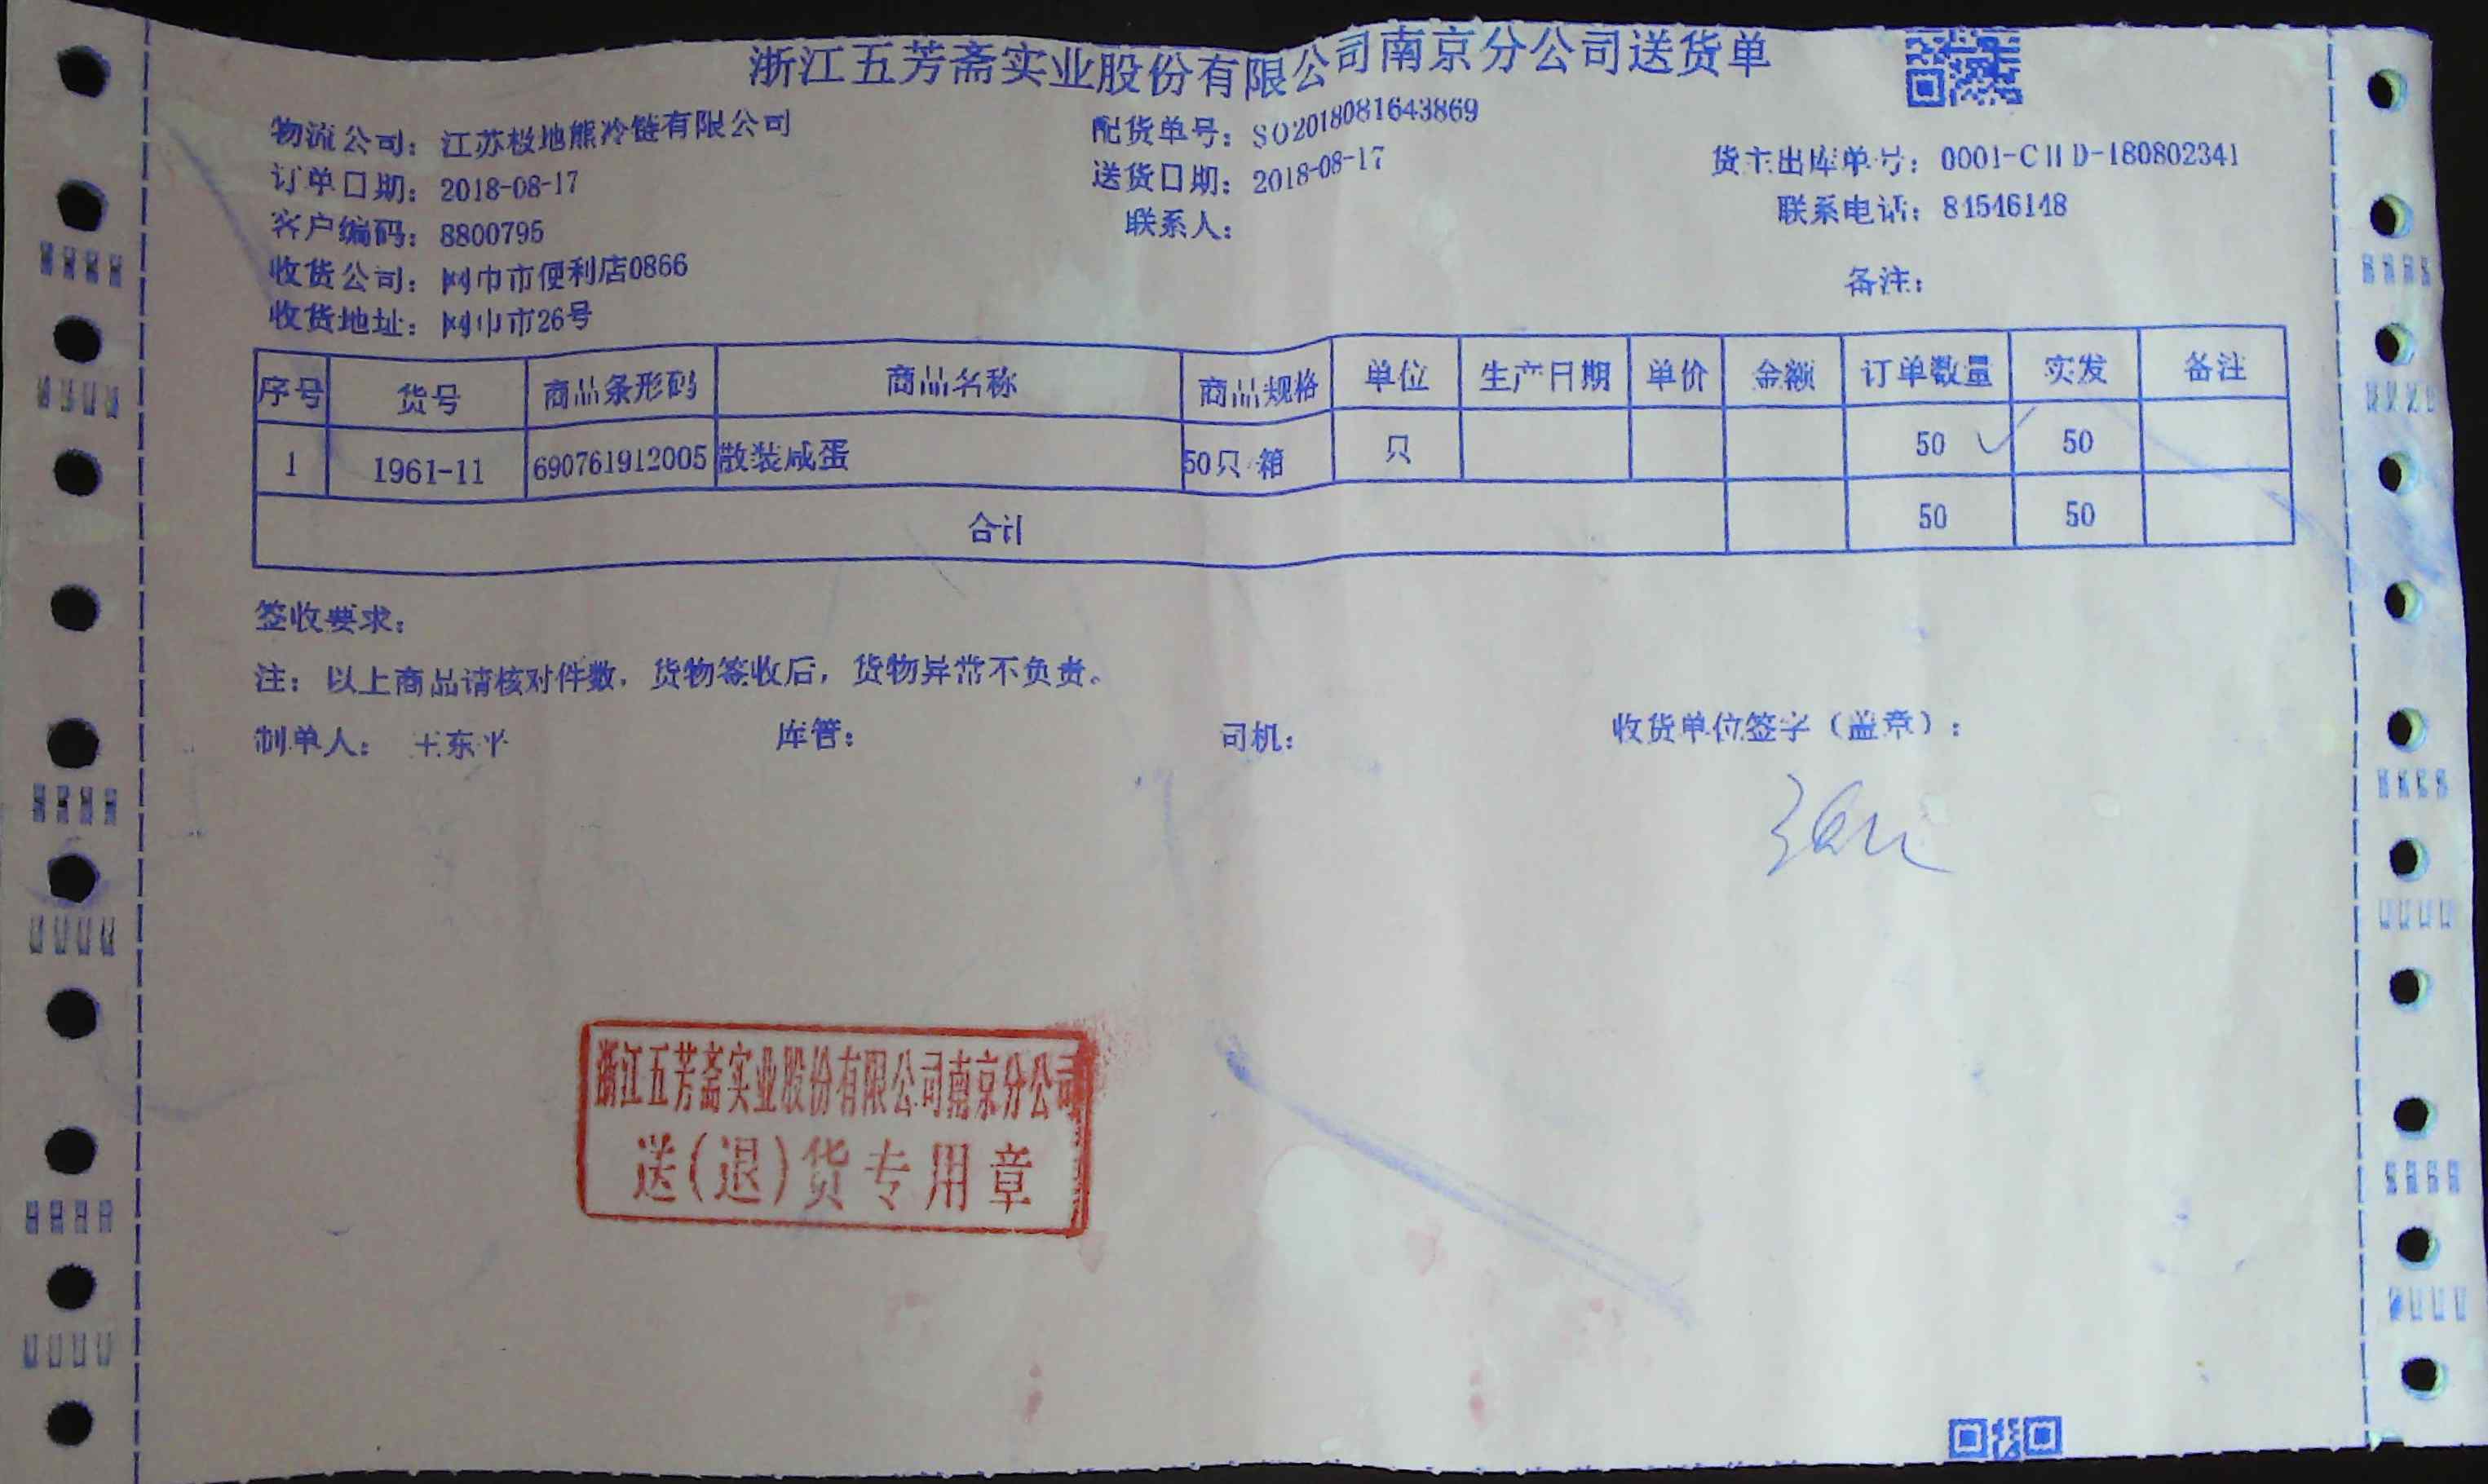 浙江五芳斋实业股份有限公司南京分公司送货单
物流公司：江苏极地熊冷链有限公司 配货单号：SO2018081643869
订单日期：2018-08-17 送货日期：2018-08-17 货主出库单号：0001-CHD-180802341
客户编码：8800795 联系人： 联系电话：84546148
收货公司：网巾市便利店0866 备注：
收货地址：网巾市26号
序号 货号 商品条形码 商品名称 商品规格 单位 生产日期 单价 金额 订单数量 实发 备注
1 1961-11 690761912005 散装咸蛋 50只/箱 只 50 50
合计 50 50
签收要求：
注：以上商品请核对件数，货物签收后，货物异常不负责。
制单人： 王东平 库管： 司机： 收货单位签字（盖章）：
浙江五芳斋实业股份有限公司南京分公司
送(退)货专用章